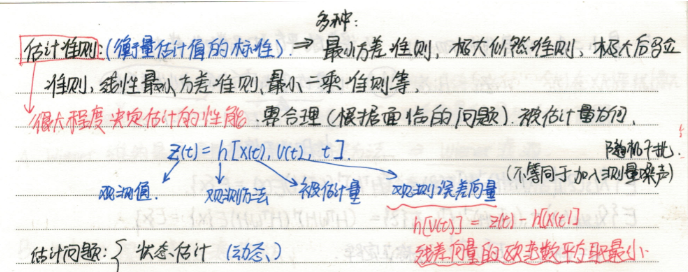 多种:
估计准则:(衡量估计值的标准) ⇒ 最小方差准则, 极大似然准则, 极大后验
准则, 线性最小方差准则, 最小二乘准则等,
很大程度决定估计的性能. 要合理(根据面临的问题). 被估计量为
z(t) = h[x(t), v(t), t].
随机干扰.
(不等同于加入测量噪声)
观测值. 观测方法 被估计量 观测误差向量
h[v(t)] = z(t) - h[x(t)]
残差向量的欧态数平方取最小.
估计问题:{ 状态估计 (动态、)